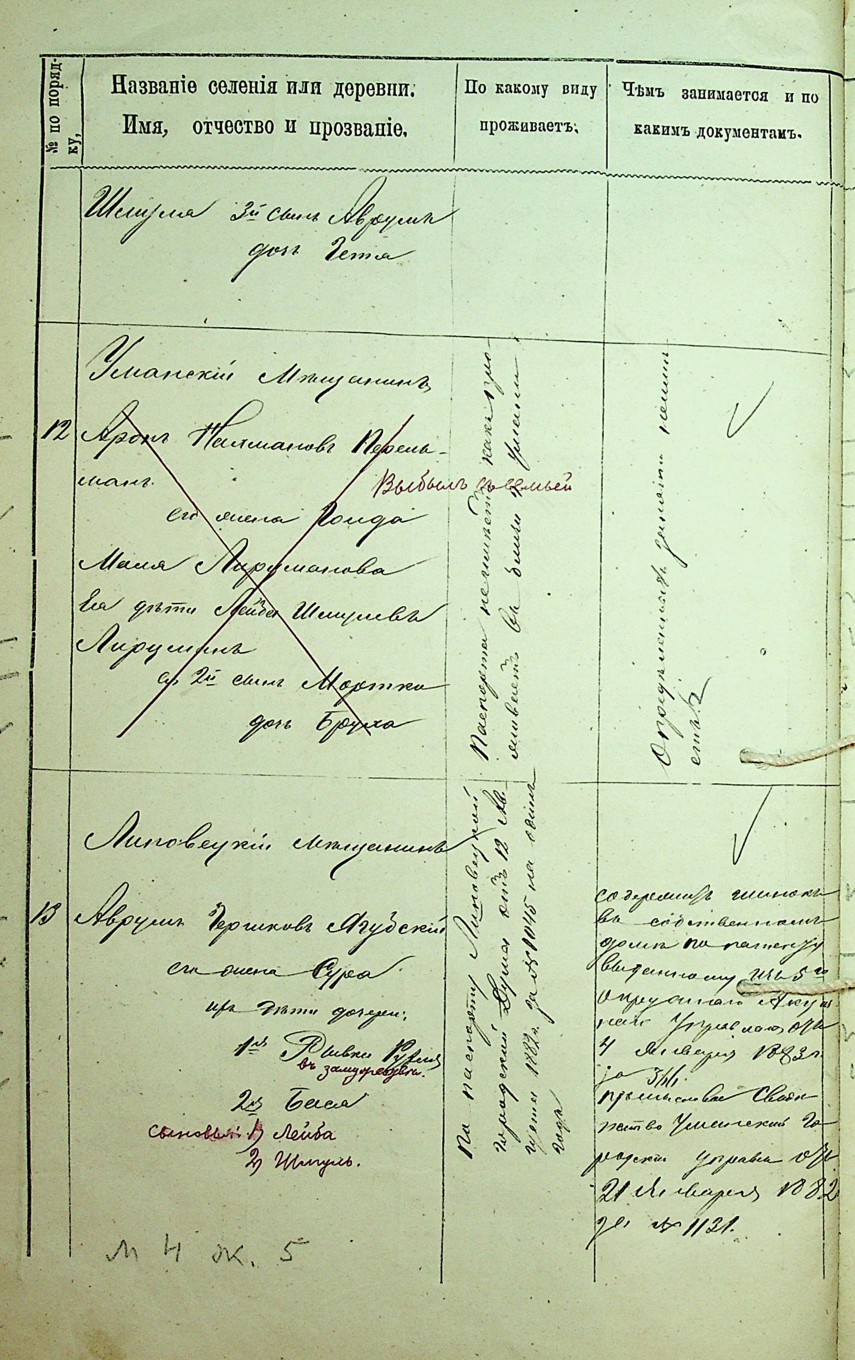 № по поряд-
ку,
Названіе селенія или деревни.
Имя, отчество и прозваніе.
По какому виду
проживаетъ.
Чѣмъ занимается и по
какимъ документамъ.
Шмуля 3й сынъ Аврумъ
дочь Гетя
Уманскій Мѣщанинъ
12
Аронъ Нахмановъ Перель-
манъ
Выбылъ съ семьей
его жена Гоида
Маля Лирумамова
Ея дѣти Лейба Шмулевъ
Лируманъ
2й сынъ Мортко
дочь Бруха
Паспорта неимѣетъ какъ про-
живаетъ въ близи г Умани
Опредѣленныхъ занятій неимѣ-
етъ
Липовецкій мѣщанинъ
13
Аврумъ Гершковъ Ягубскій
его жена Сура
ихъ дѣти дочери:
1я Рывка
въ замужествѣ.
2я Бася
сыновья: 1) Лейба
2) Шмуль.
по паспорту Липовецкой
городской Думы отъ 12 Ав-
густа 1882 г. за № 1045 на одинъ
года
содержитъ шинокъ
въ собственномъ
домѣ по патенту
выданному изъ 5го
окружнаго Акциз
наго Управл отъ
4 Января 1883 г.
за №
промысловое Свидѣ
тельство Уманской Го-
родской управы отъ
21 Января 1882
за № 1131.
М 4 ж. 5